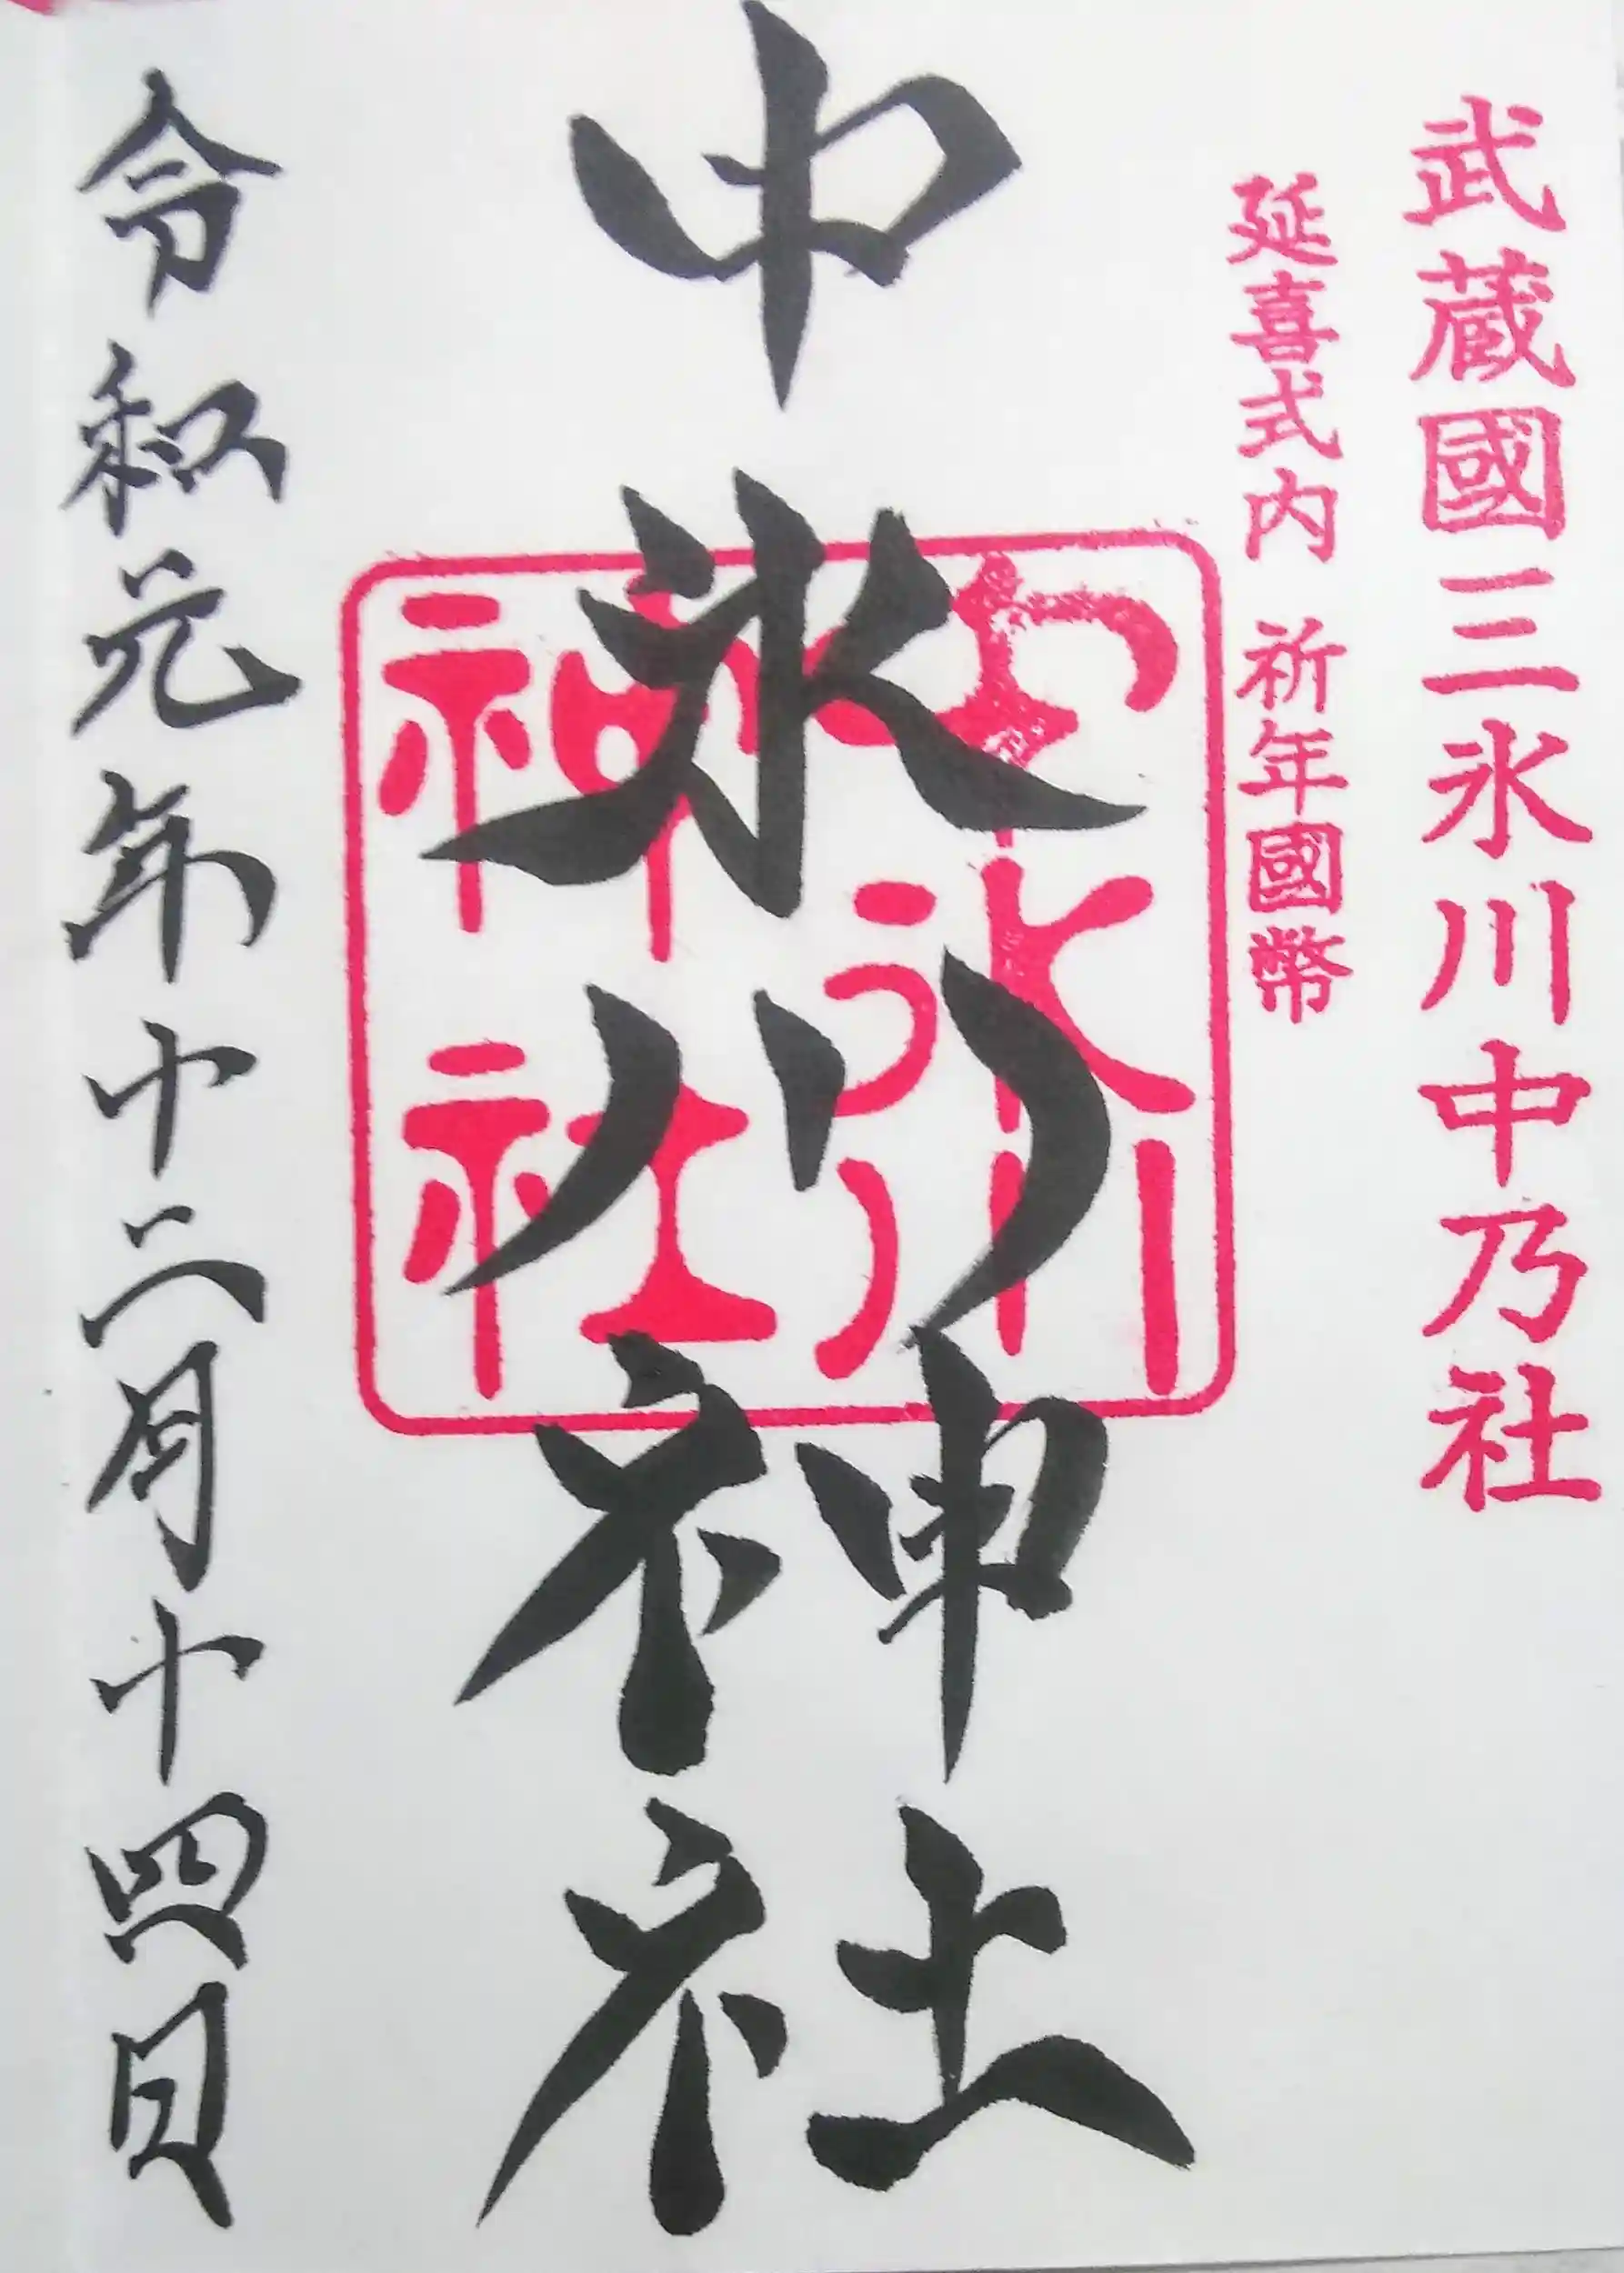 武蔵國三氷川中乃社
延喜式内 祈年國幣
中氷川神社
中氷川
神社
令和元年十二月十四日